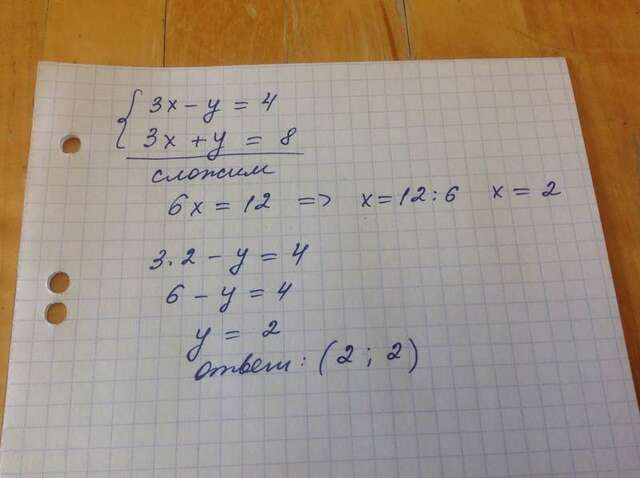 3x - y = 4
3x + y = 8
сложим
6x = 12 => x = 12 : 6 x = 2
3 · 2 - y = 4
6 - y = 4
y = 2
ответ: (2; 2)